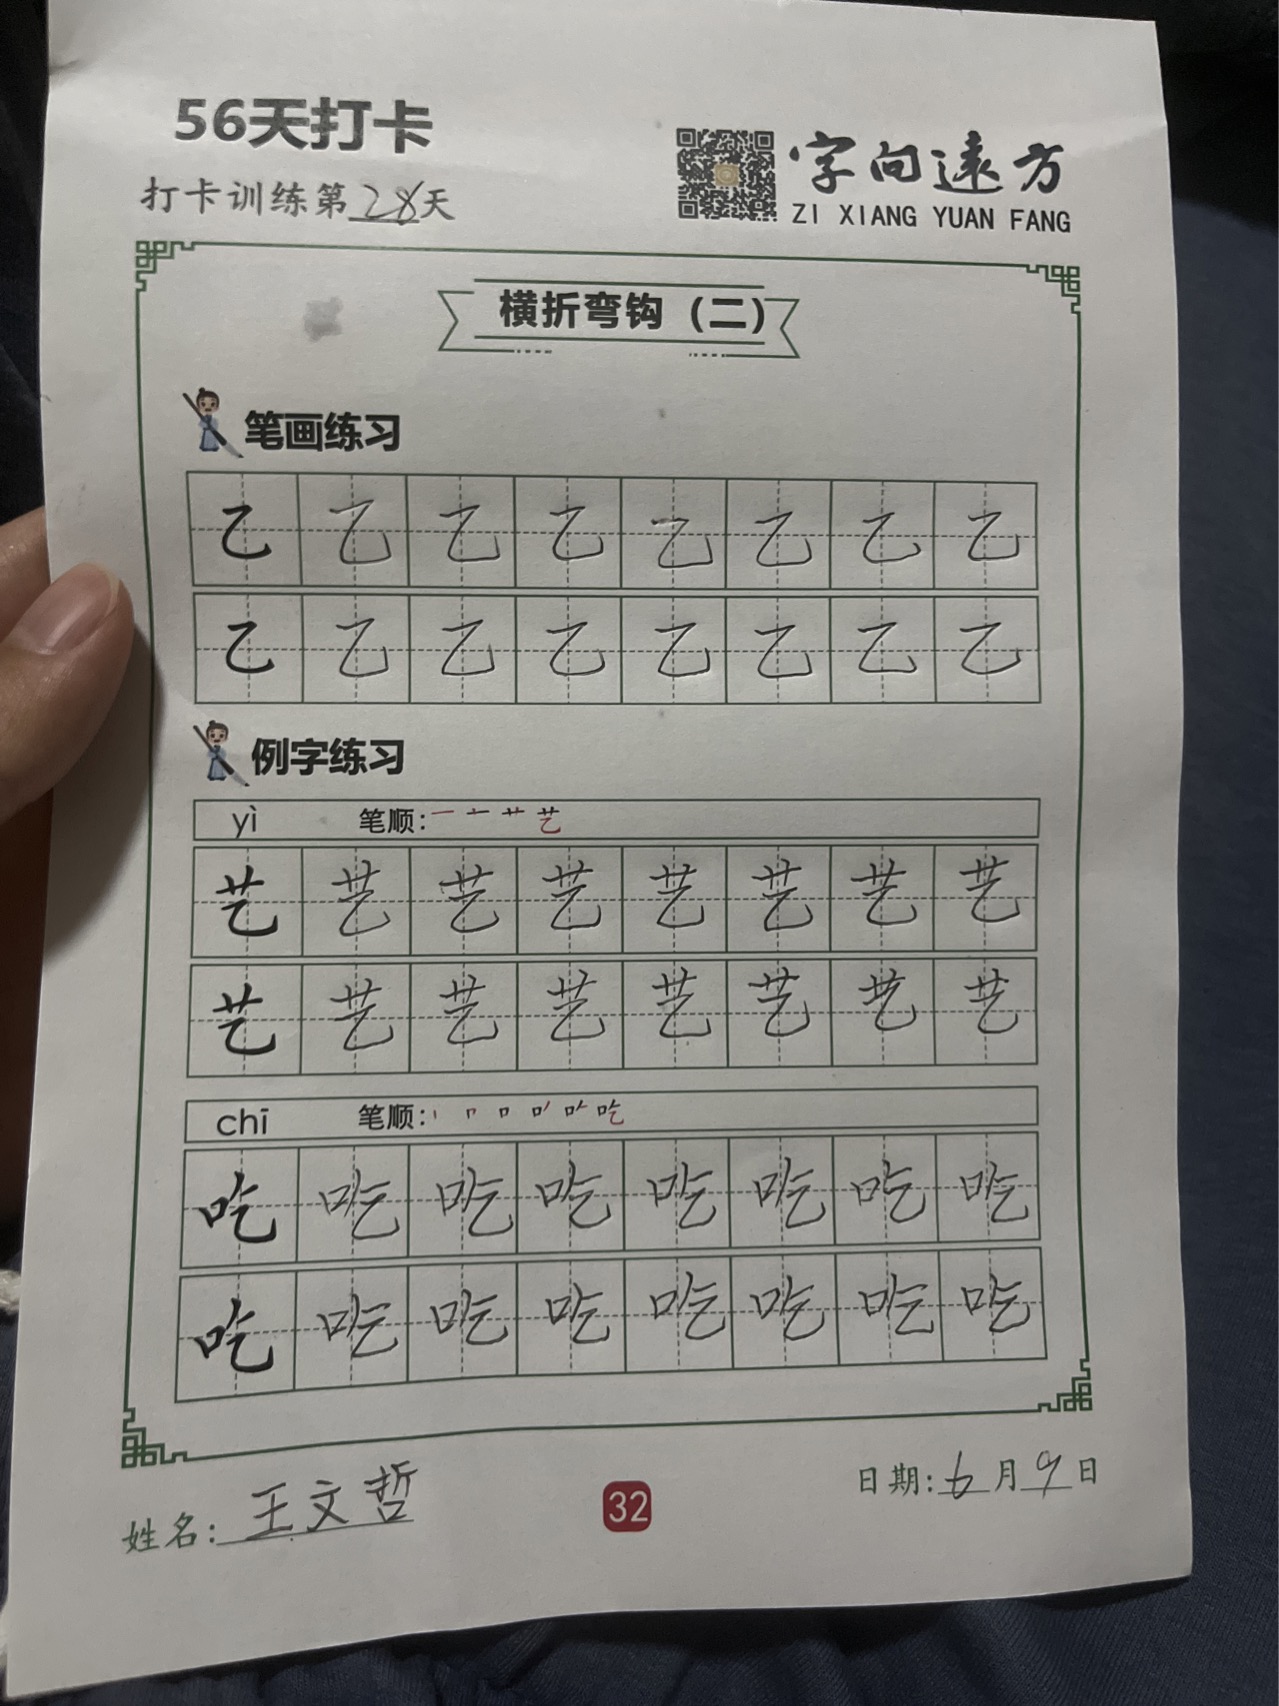 56天打卡
打卡训练第28天
字向远方
ZI XIANG YUAN FANG
横折弯钩（二）
笔画练习
乙 乙 乙 乙 乙 乙 乙 乙
乙 乙 乙 乙 乙 乙 乙 乙
例字练习
yì 笔顺: 一 艹 艺
艺 艺 艺 艺 艺 艺 艺 艺
艺 艺 艺 艺 艺 艺 艺 艺
chī 笔顺: 丨 口 吃
吃 吃 吃 吃 吃 吃 吃 吃
吃 吃 吃 吃 吃 吃 吃 吃
姓名: 王文哲
32
日期: 6月9日